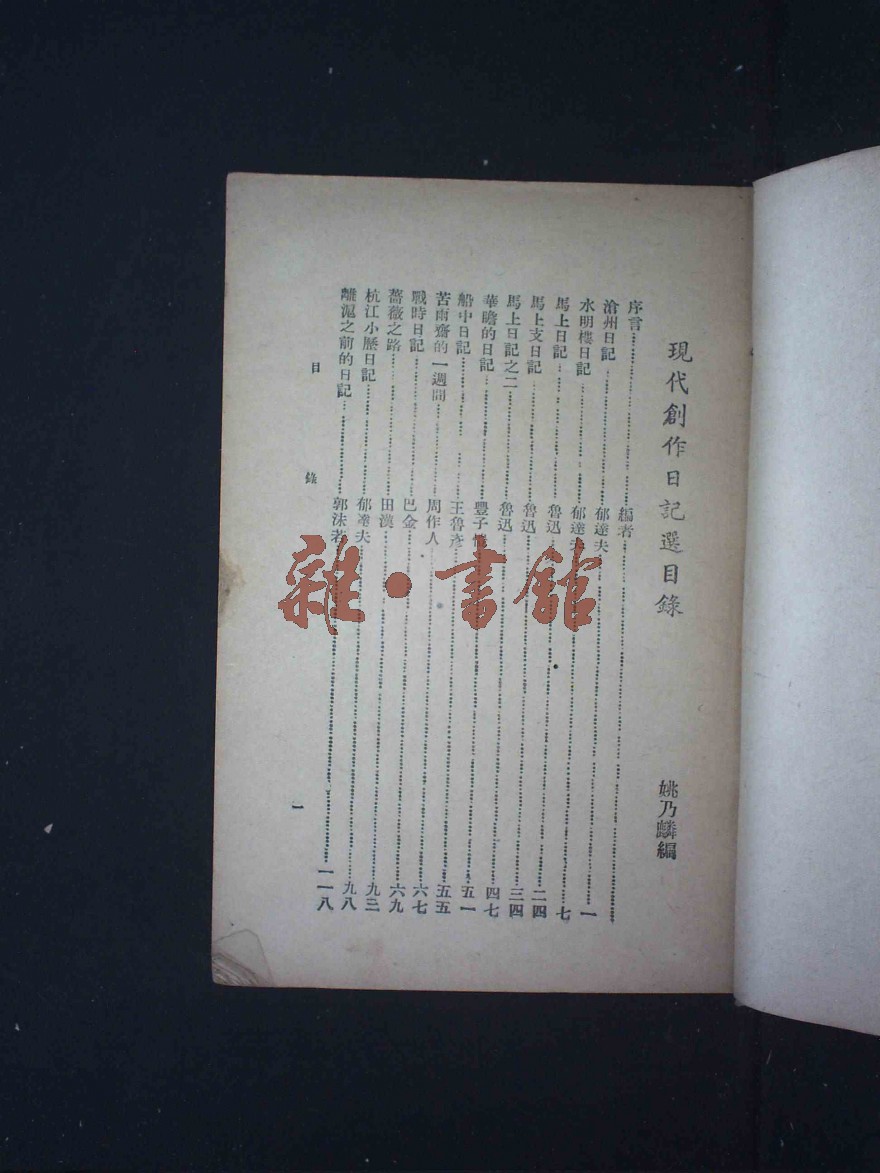 現代創作日記選目錄 姚乃麟編
序言 編者
滄州日記 郁達夫 一
水明樓日記 郁達夫 七
馬上日記 魯迅 二四
馬上支日記 魯迅 三四
馬上日記之二 魯迅 四七
華瞻的日記 豐子愷 五一
船中日記 王魯彥 五五
苦雨齋的一週間 周作人 六七
戰時日記 巴金 六九
薔薇之路 田漢 九三
杭江小歷日記 郁達夫 九八
離滬之前的日記 郭沫若 一一八
目錄 一
雜·書館